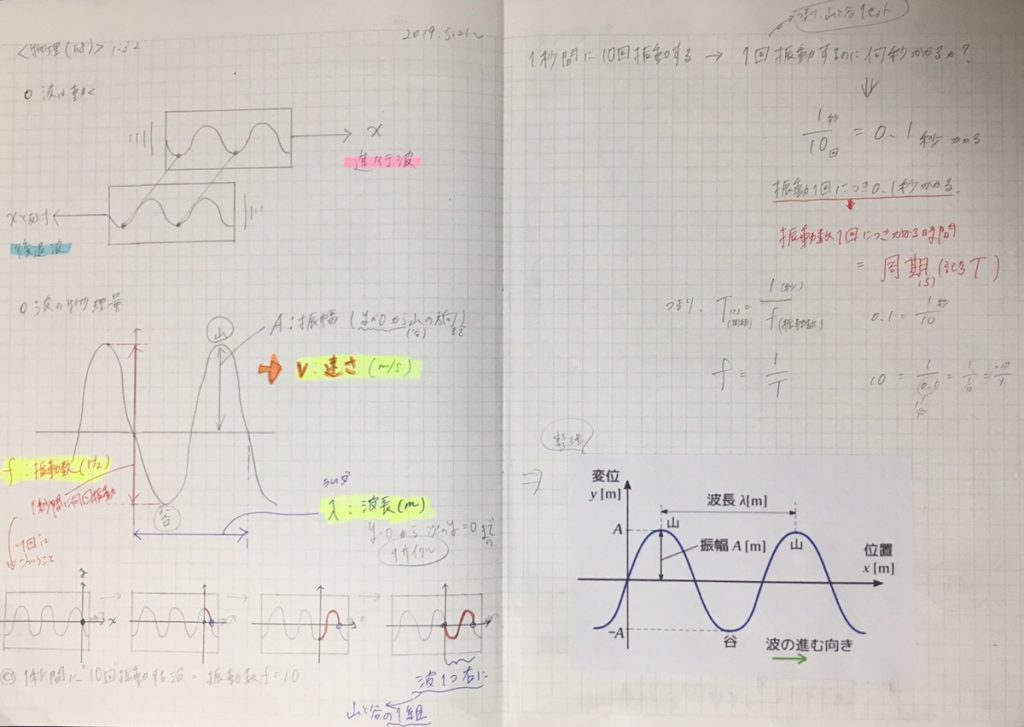 <物理(by)> 1:52
2019.5.21〜
○ 波は動く
x
進行波
後退波
○ 波の物理量
山
A:振幅
V:速さ(m/s)
f:振動数(Hz)
1秒間に何回振動
谷
ラムダ
λ:波長(m)
y=0から次のy=0まで
1サイクル
1回に
こういうこと
y
x
1秒間に"10回"振動する波 = 振動数f=10
波1つ右に
山と谷の1組
つまり、山と谷1セット
1秒間に10回振動する → 1回振動するのに何秒かかるか?
1秒/10回 = 0.1秒かかる
振動1回につき0.1秒かかる.
振動数1回につきかかる時間
= 周期(s) (記号T)
つまり、T(s)(周期) = 1(秒)/f(振動数)
0.1 = 1秒/10
f = 1/T
変位
y [m]
波長 λ[m]
A
山
山
振幅 A [m]
位置
x [m]
-A
谷
波の進む向き